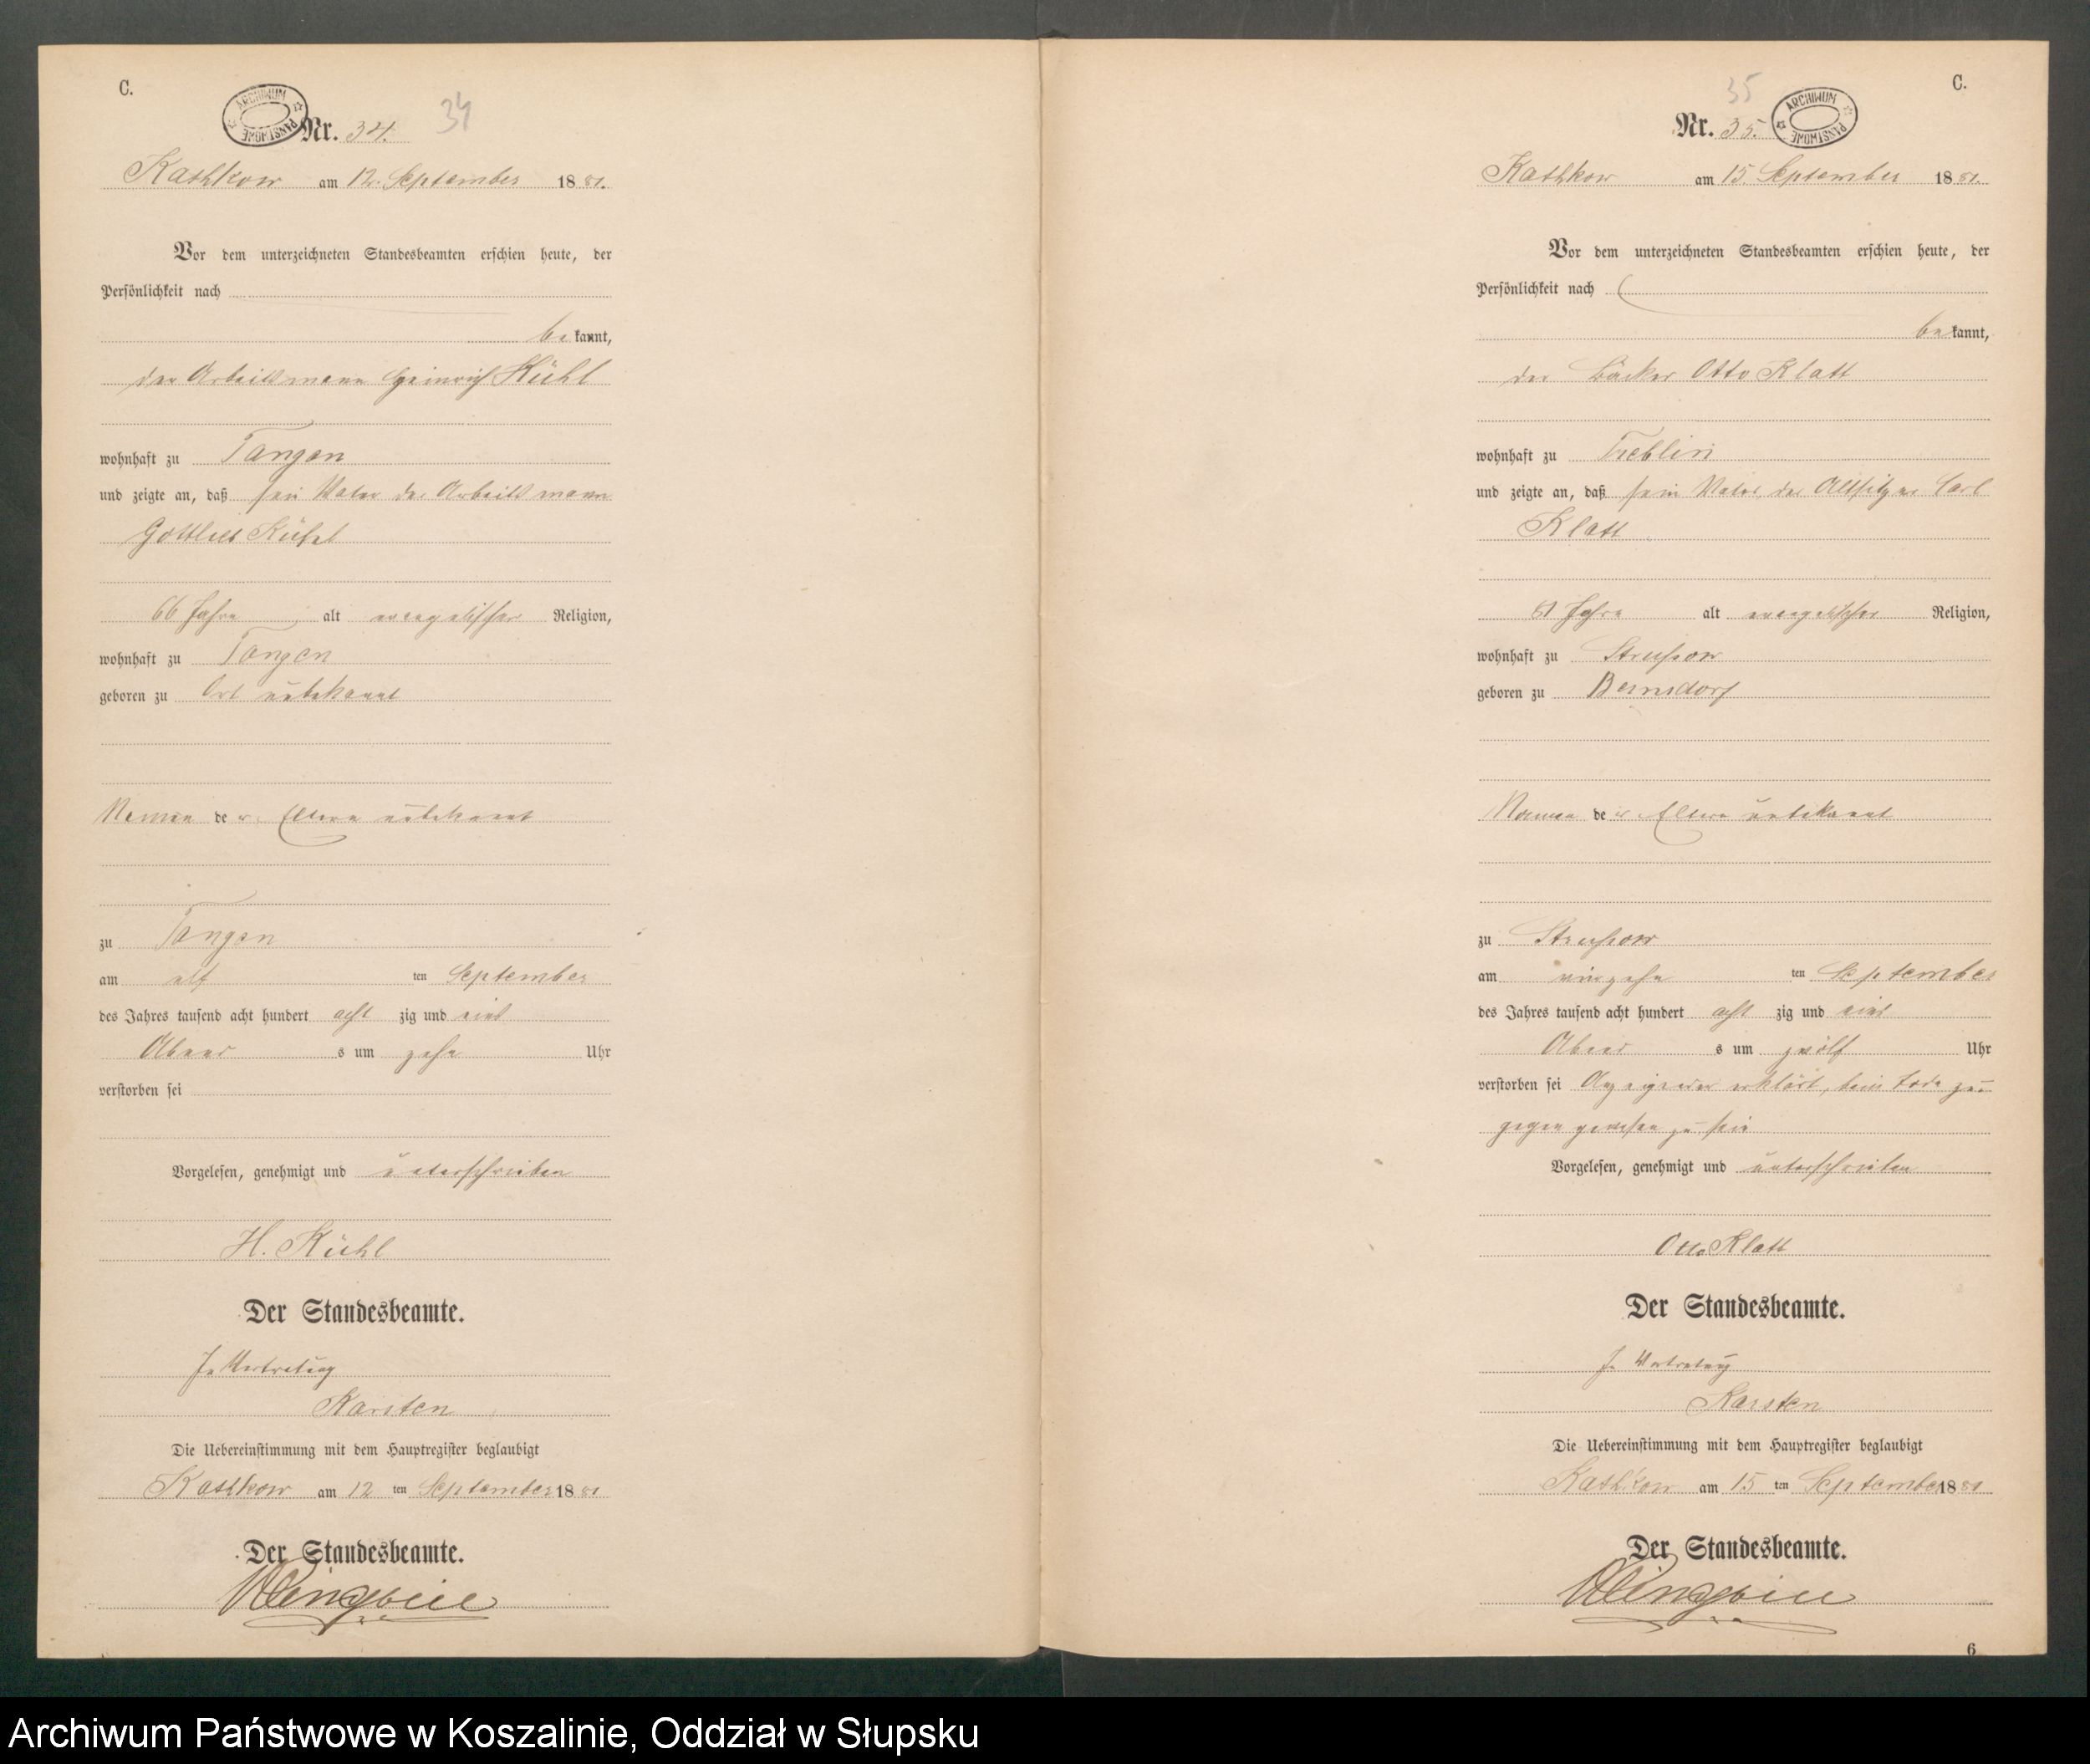 C.
ARCHIWUM PAŃSTWOWE
Nr. 34. 34
Kathkow am 12. September 1881.
Vor dem unterzeichneten Standesbeamten erschien heute, der
Persönlichkeit nach
bekannt,
der Arbeitsmann Heinrich Kühl
wohnhaft zu Tangen
und zeigte an, daß sein Vater der Arbeitsmann
Gottlieb Kühl
66 Jahre alt evangelischer Religion,
wohnhaft zu Tangen
geboren zu Ort unbekannt
Namen der Eltern unbekannt
zu Tangen
am elf ten September
des Jahres tausend acht hundert acht zig und eins
Abend s um zehn Uhr
verstorben sei
Vorgelesen, genehmigt und unterschrieben
H. Kühl
Der Standesbeamte.
In Vertretung
Karsten
Die Uebereinstimmung mit dem Hauptregister beglaubigt
Kathkow am 12 ten September 1881
Der Standesbeamte.
C.
35
Nr. 35. ARCHIWUM PAŃSTWOWE
Kathkow am 15. September 1881.
Vor dem unterzeichneten Standesbeamten erschien heute, der
Persönlichkeit nach
bekannt,
der Bäcker Otto Klatt
wohnhaft zu Treblin
und zeigte an, daß sein Vater der Altsitzer Carl
Klatt
81 Jahre alt evangelischer Religion,
wohnhaft zu Strussow
geboren zu Bernsdorf
Namen der Eltern unbekannt
zu Strussow
am vierzehn ten September
des Jahres tausend acht hundert acht zig und eins
Abend s um zwölf Uhr
verstorben sei Anzeigender erklärt, beim Tode zu-
gegen gewesen zu sein
Vorgelesen, genehmigt und unterschrieben
Otto Klatt
Der Standesbeamte.
In Vertretung
Karsten
Die Uebereinstimmung mit dem Hauptregister beglaubigt
Kathkow am 15 ten September 1881
Der Standesbeamte.
6
Archiwum Państwowe w Koszalinie, Oddział w Słupsku